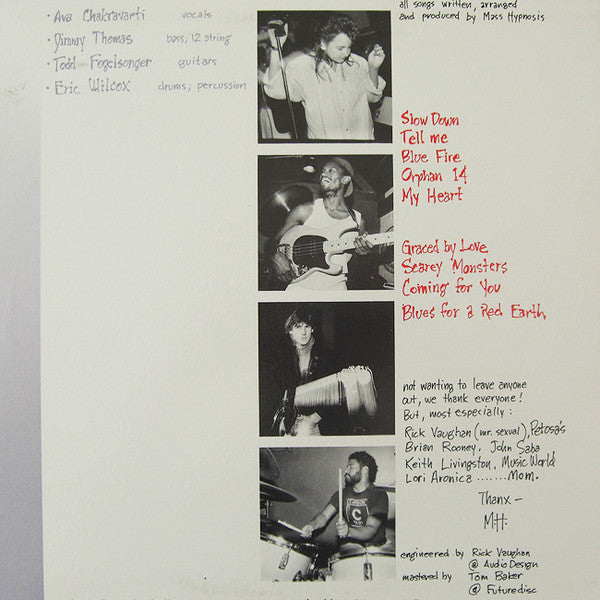 · Ava Chakravarti vocals
· Jimmy Thomas bass, 12 string
· Todd Fogelsonger guitars
· Eric Wilcox drums, percussion
all songs written, arranged
and produced by Mass Hypnosis
Slow Down
Tell me
Blue Fire
Orphan 14
My Heart
Graced by Love
Scarey Monsters
Coming for You
Blues for a Red Earth
not wanting to leave anyone
out, we thank everyone!
But, most especially:
Rick Vaughan (mr. sexual), Petosa's
Brian Rooney, John Saba
Keith Livingston, Music World
Lori Aronica ....... Mom.
Thanx -
M.H.
engineered by Rick Vaughan
@ Audio Design
mastered by Tom Baker
@ Futuredisc
C